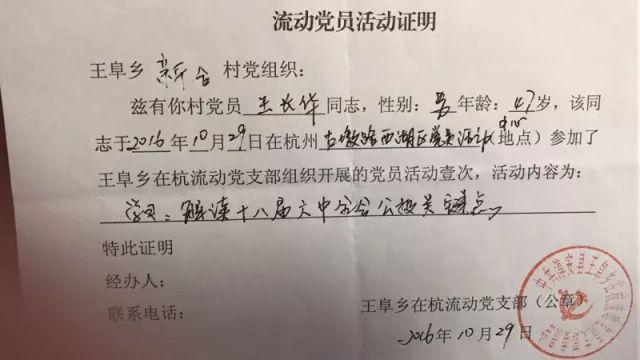 流动党员活动证明
王阜乡 村党组织：
兹有你村党员 王长华 同志，性别：男 年龄：47 岁，该同
志于 2016 年 10 月 29 日在杭州 古墩路西湖区党员活动中心（地点）参加了
王阜乡在杭流动党支部组织开展的党员活动壹次，活动内容为：
学习、解读十八届六中全会公报关键点。
特此证明
经办人：
联系电话：
王阜乡在杭流动党支部（公章）
2016 年 10 月 29 日